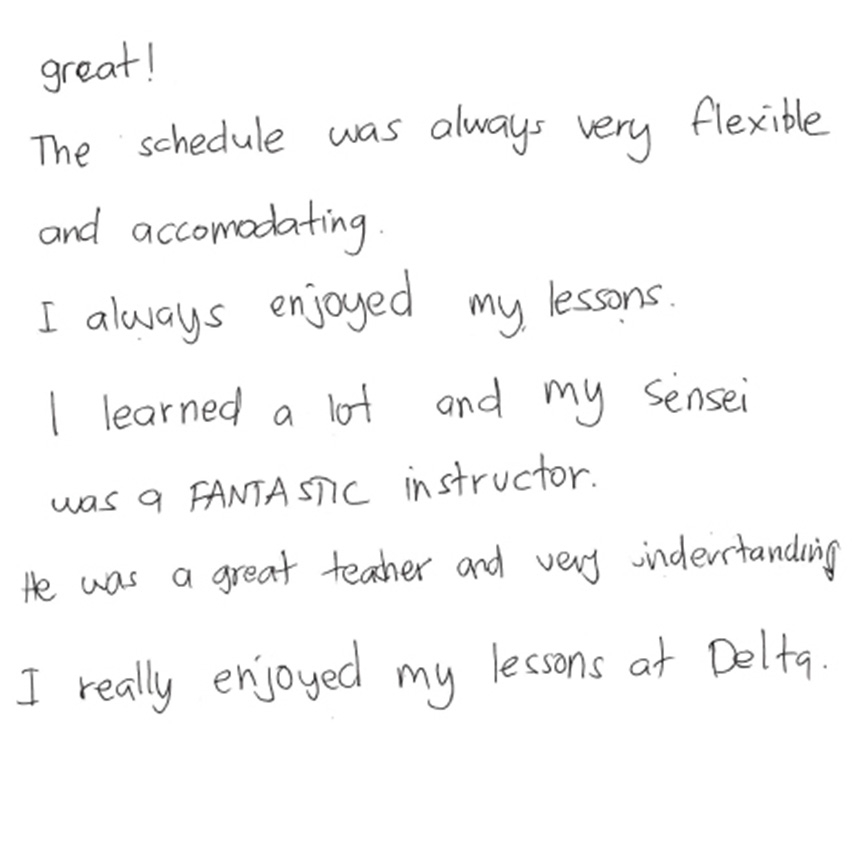 great!
The schedule was always very flexible
and accomodating.
I always enjoyed my lessons.
I learned a lot and my sensei
was a FANTASTIC instructor.
He was a great teaher and very inderstanding
I really enjoyed my lessons at Delta.